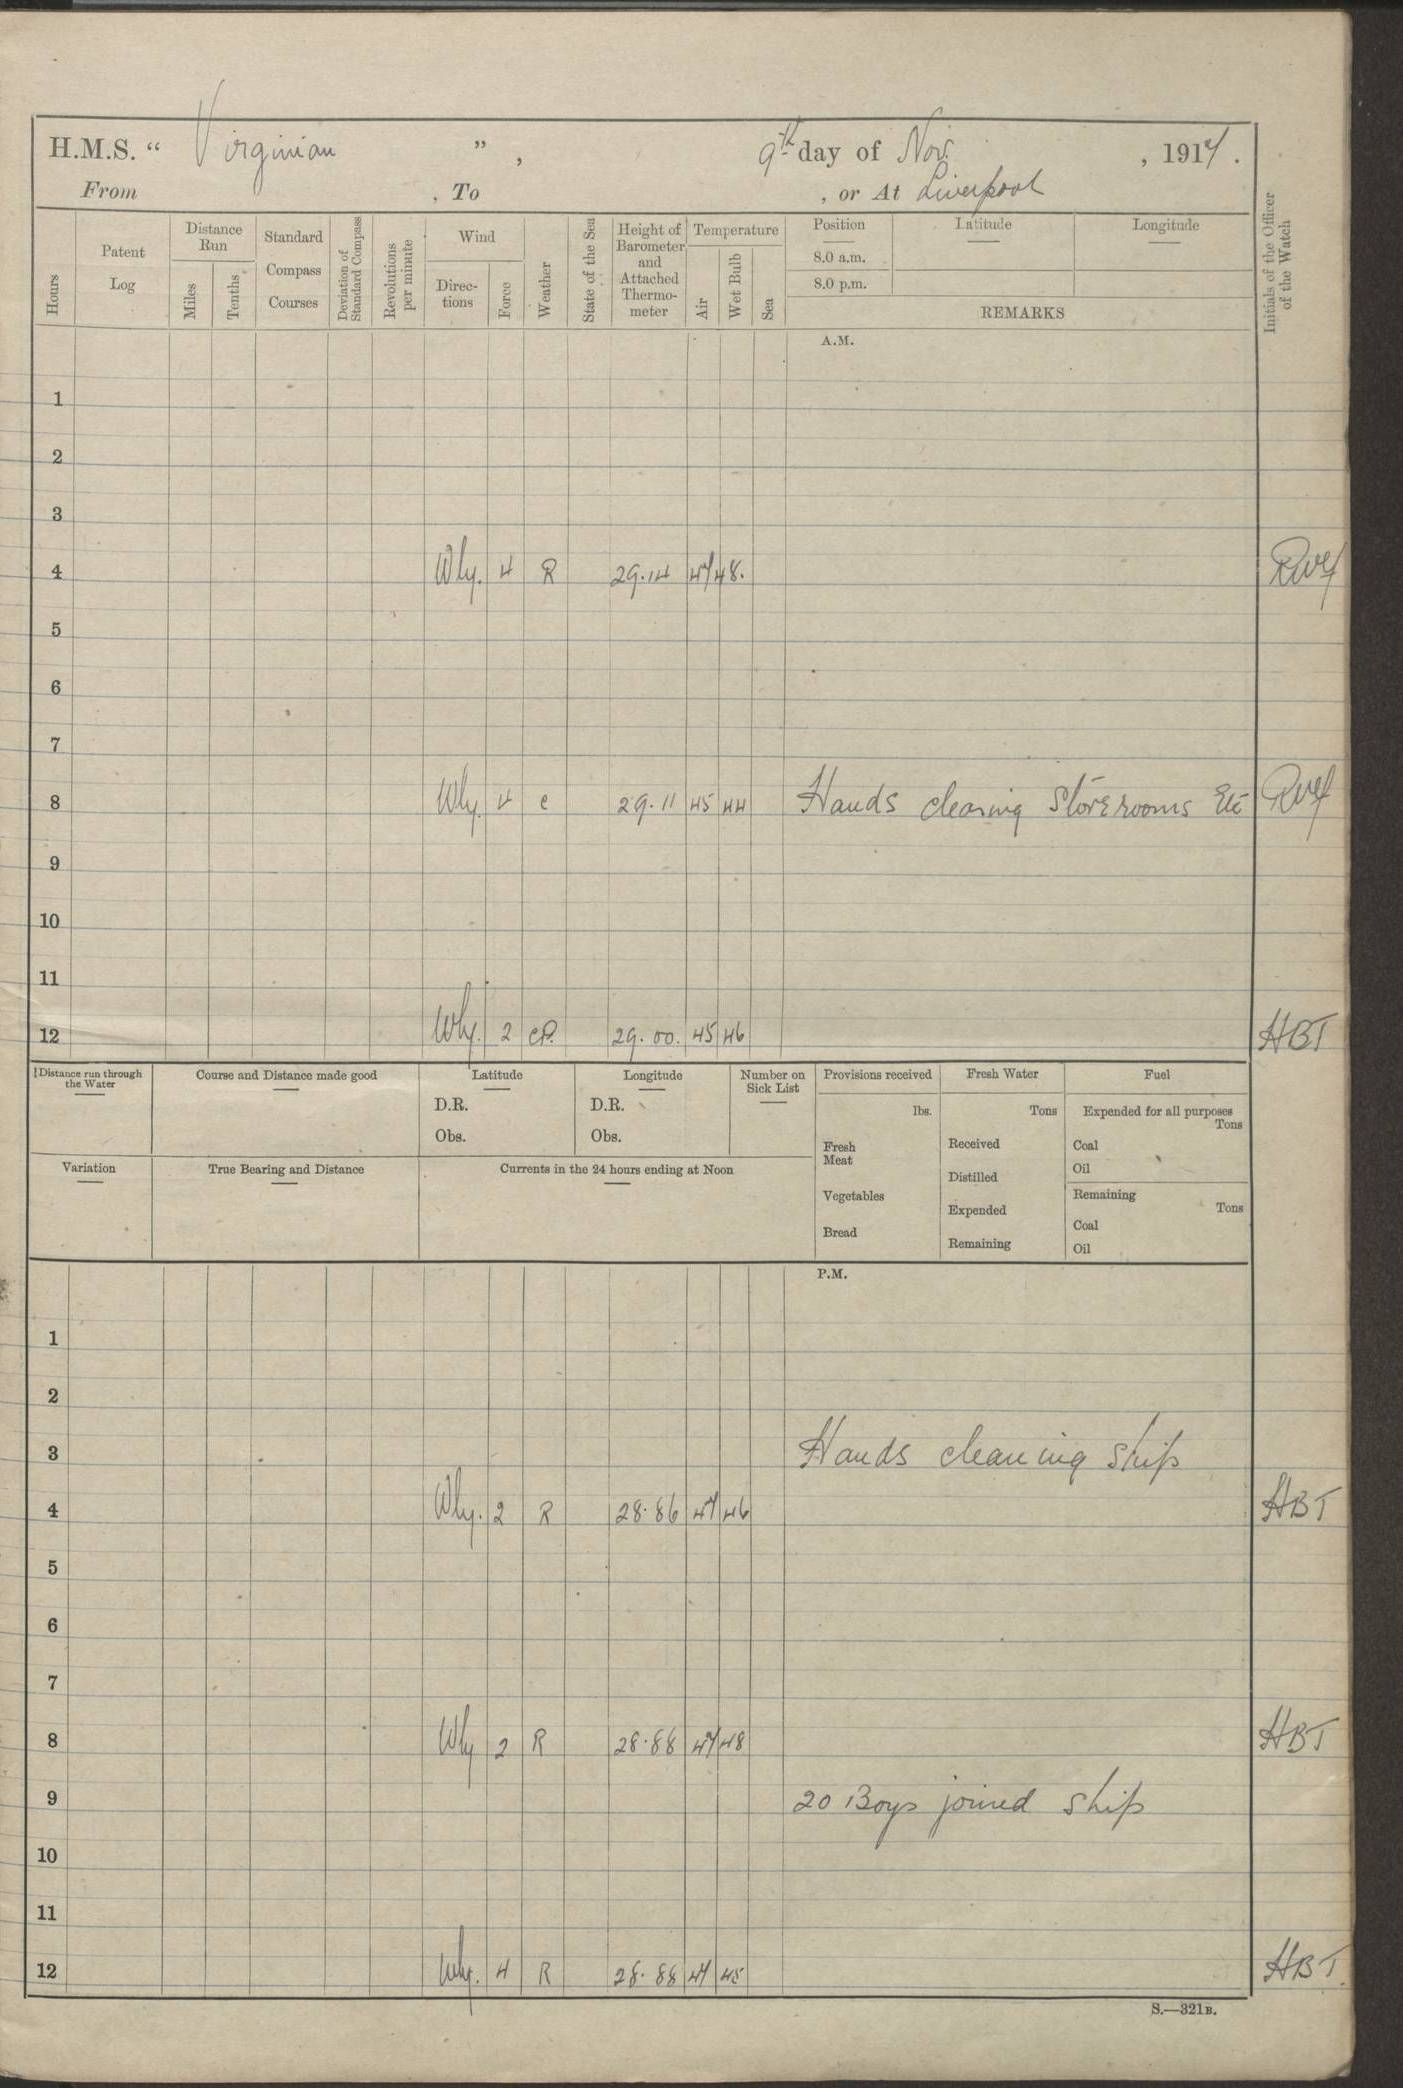 H.M.S. “ Virginian ” , 9th day of Nov. , 1914 .
From , To , or At Liverpool
Hours
Patent Log
Distance Run
Miles
Tenths
Standard Compass Courses
Deviation of Standard Compass
Revolutions per minute
Wind
Direc-tions
Force
Weather
State of the Sea
Height of Barometer and Attached Thermo-meter
Temperature
Air
Wet Bulb
Sea
Position
8.0 a.m.
8.0 p.m.
Latitude
Longitude
REMARKS
Initials of the Officer of the Watch
A.M.
1
2
3
4 Wly. 4 R 29.14 47 48.
5
6
7
8 Wly. 4 c 29.11 45 44 Hands clearing Storerooms Etc
9
10
11
12 Wly. 2 cP. 29.00. 45 46 HBT
Distance run through the Water
Course and Distance made good
Latitude
D.R.
Obs.
Longitude
D.R.
Obs.
Number on Sick List
Provisions received
lbs.
Fresh Meat
Vegetables
Bread
Fresh Water
Tons
Received
Distilled
Expended
Remaining
Fuel
Expended for all purposes
Tons
Coal
Oil
Remaining
Tons
Coal
Oil
Variation
True Bearing and Distance
Currents in the 24 hours ending at Noon
P.M.
1
2
3 Hands cleaning ship
4 Wly. 2 R 28.86 47 46 HBT
5
6
7
8 Wly 2 R 28.88 47 48 HBT
9 20 Boys joined ship
10
11
12 Wly. 4 R 28.88 47 45 HBT.
S.—321B.